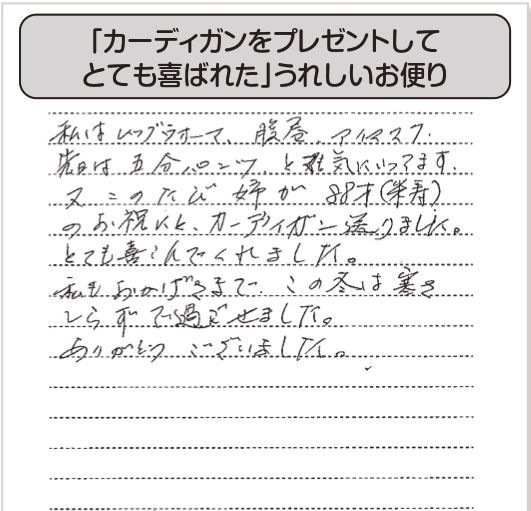 「カーディガンをプレゼントして
とても喜ばれた」うれしいお便り
私はレッグウォーマ、腹巻、アイマスク.
先日は五分パンツ と 気にいってます.
又このたび 姉が 88才(米寿)
のお祝いと、カーディガン送りました。
とても喜こんでくれました。
私も おかげさまで、この冬は 寒さ
しらずで過ごせました。
ありがとう ございました。